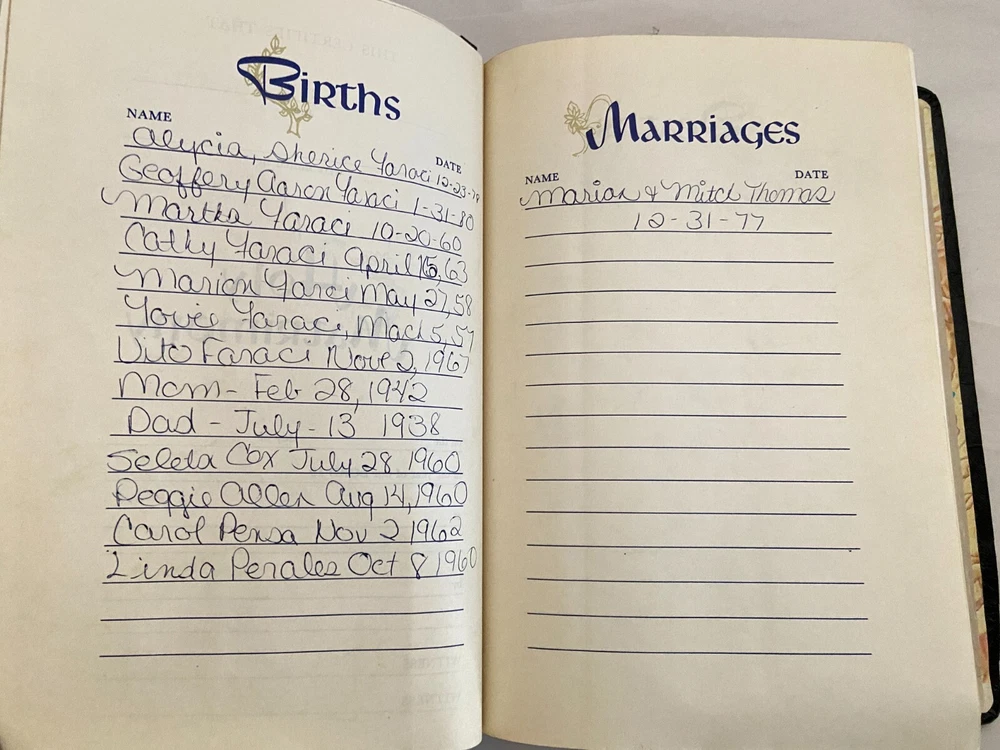 Births
NAME
DATE
Alycia, Sherice Faraci 12-23-79
Geoffery Aaron Faraci 1-31-80
Martha Faraci 10-20-60
Cathy Faraci April 16, 63
Marion Farci May 27, 58
Yovie Faraci, Mach 5, 57
Vito Faraci Nove 2, 1967
Mom - Feb 28, 1942
Dad - July - 13 1938
Seleta Cox July 28 1960
Peggie Allen Aug 14, 1960
Carol Pensa Nov 2 1962
Linda Perales Oct 8 1960
WITNESS
WITNESS
Marriages
NAME
DATE
Marian & Mitch Thomas
12-31-77